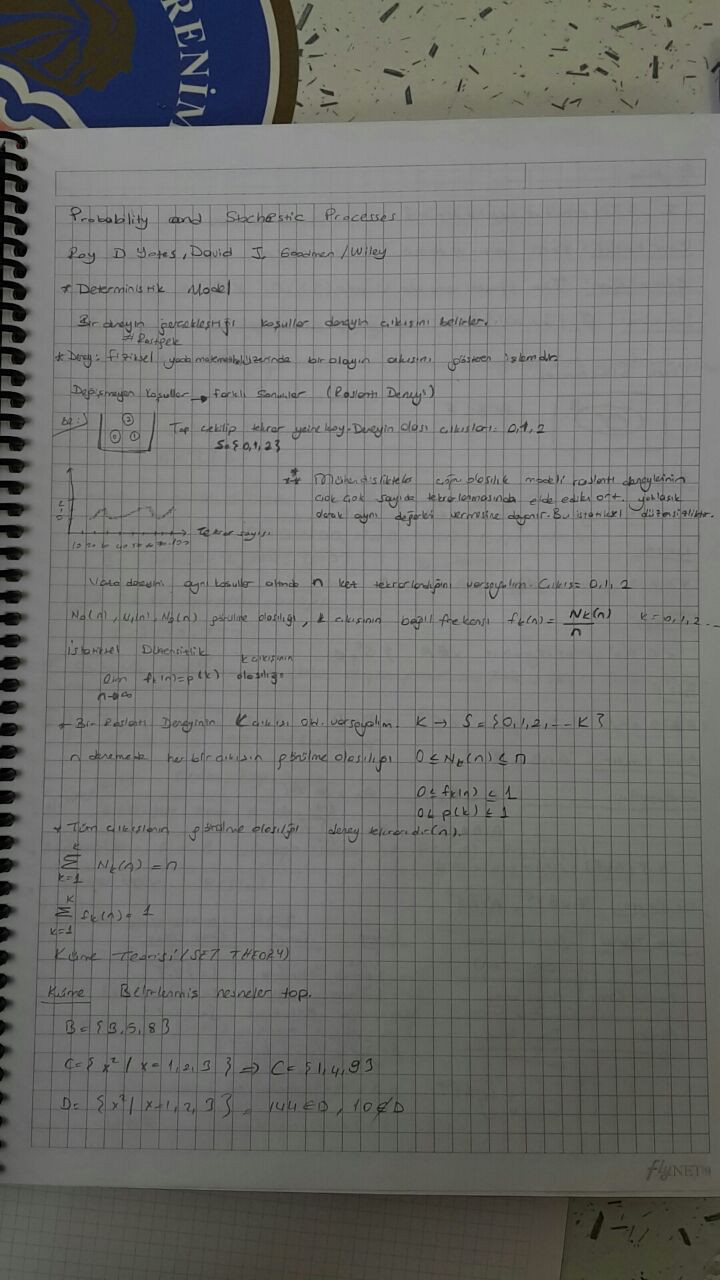 RENİM
Probability and Stochastic Processes
Roy D Yates, David J. Goodman / Wiley
* Deterministik Model
Bir deneyin gerçekleştiği koşullar deneyin çıkışını belirler.
* Deney: fiziksel yada bir olayın akışını gösteren işlemdir
Değişmeyen koşullar → farklı sonuclar (Raslantı Deneyi)
2
0 1
Top çekilip tekrar yerine koy. Deneyin olası çıkışları: 0,1,2
S={0,1,2}
** Mühendislikteki çoğu olasılık modeli raslantı deneylerinin
çok çok sayıda tekrarlanmasında elde edilen ort. yaklaşık
olarak aynı değerleri vermesine dayanır. Bu istatiksel düzensizliktir.
Tekrar sayısı
deneyini aynı koşullar altında n kez tekrarlandığını varsayalım. Çıkış= 0,1,2
N0(n), N1(n), N2(n) görülme olasılığı, k çıkışının bağıl frekansı fk(n) = Nk(n)/n k=0,1,2...
istatiksel Düzensizlik
lim n→∞ fk(n)=p(k) k çıkışının olasılığı
* Bir Raslantı Deneyinin K çıkışı varsayalım. K → S = {0,1,2,...K}
n denemede her bir çıkışın görülme olasılığı 0 ≤ Nk(n) ≤ n
0 ≤ fk(n) ≤ 1
0 ≤ p(k) ≤ 1
* Tüm çıkışların görülme olasılığı deney tekrarıdır(n).
K Σ k=1 Nk(n) = n
K Σ k=1 fk(n) = 1
Küme Teorisi (SET THEORY)
Küme Belirlenmis nesneler top.
B = {3,5,8}
C={ x² | x = 1,2,3 } ⇒ C = {1,4,9}
D= {x² | x=1,2,3} 144 ∈ D, 10 ∉ D
flyNET